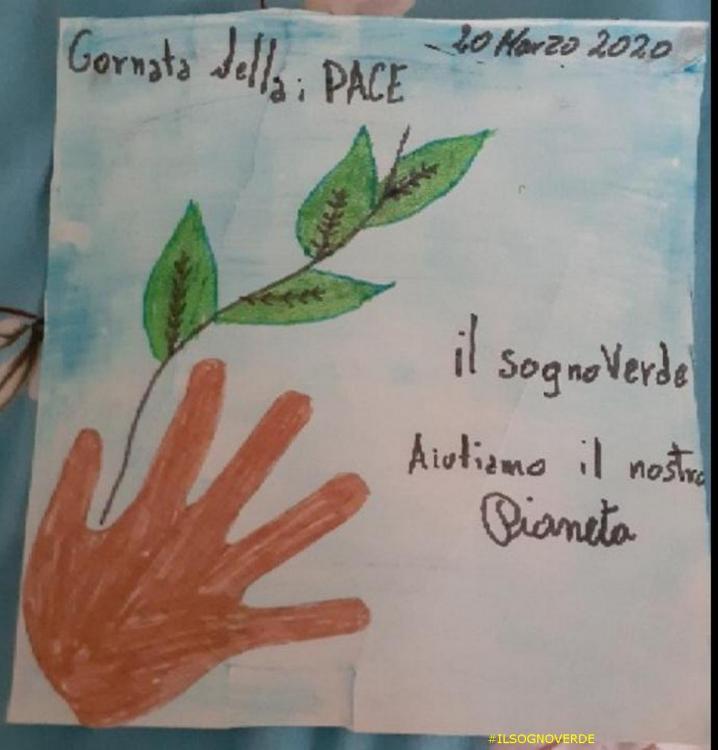 Gornata della; PACE
20 Marzo 2020
il sognoVerde
Aiutiamo il nostro
Pianeta
#ILSOGNOVERDE